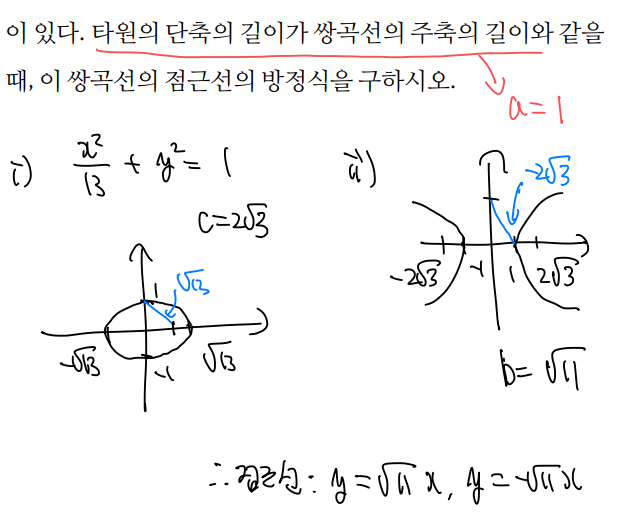 이 있다. 타원의 단축의 길이가 쌍곡선의 주축의 길이와 같을
때, 이 쌍곡선의 점근선의 방정식을 구하시오.
a=1
i) x²/13 + y² = 1
c=2√3
√13
1
-√13
-1
√13
ii)
-2√3
-2√3
-1
1
2√3
b=√11
∴ 점근선: y=√11 x, y=-√11 x